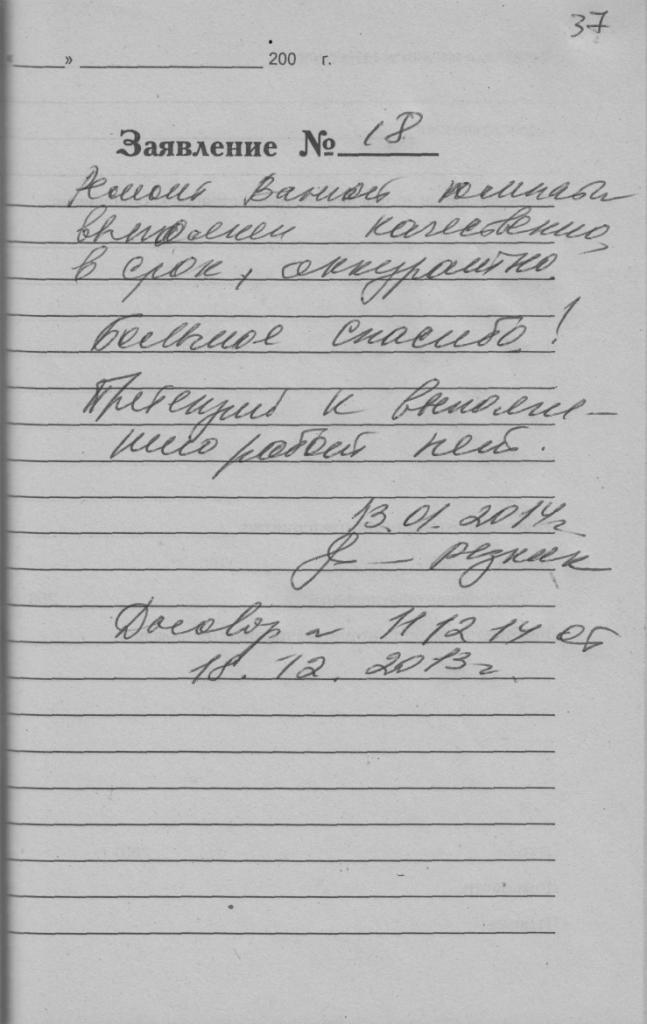 37
«____» ____________ 200 г.
Заявление № 18
Ремонт ванной комнаты
выполнен качественно,
в срок, аккуратно.
Большое спасибо!
Претензий к выполне-
нию работ нет.
13.01.2014г.
Резник
Договор № 111214 от
18.12.2013г.